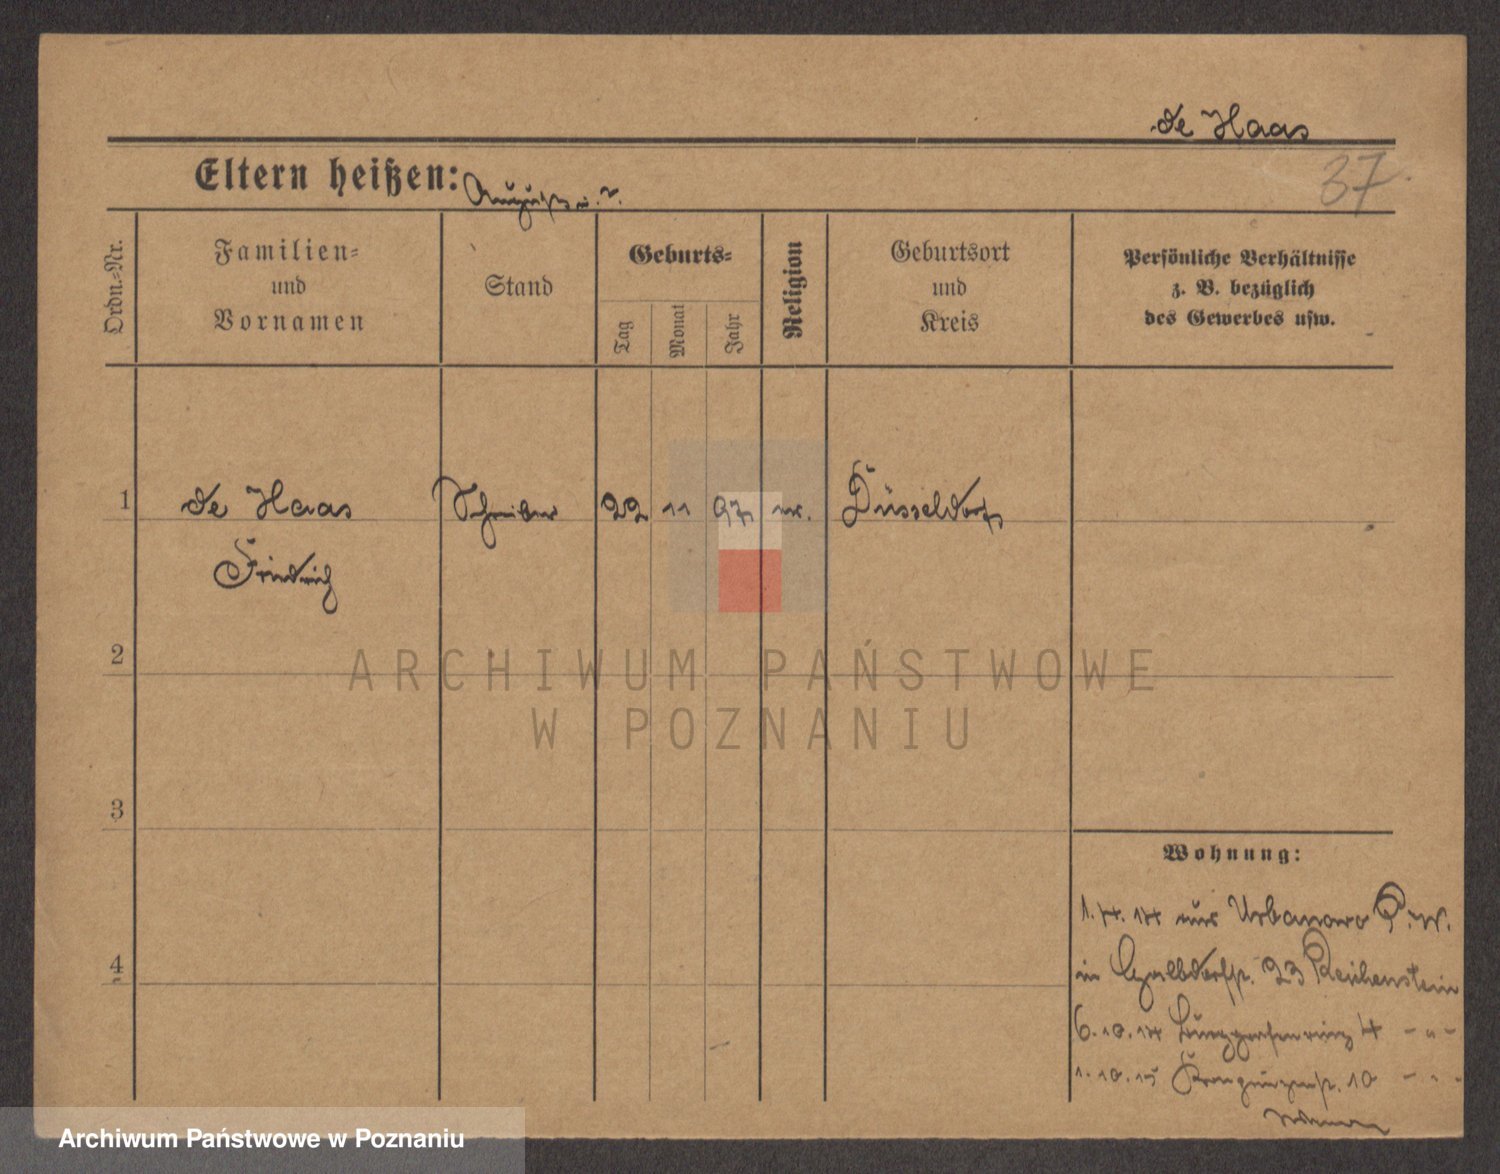 de Haas
37
Eltern heißen: August u. ?
Ordn.-Nr.
Familien-
und
Vornamen
Stand
Geburts-
Tag
Monat
Jahr
Religion
Geburtsort
und
Kreis
Persönliche Verhältnisse
z. B. bezüglich
des Gewerbes usw.
1 de Haas Schreiber 22 11 97 Düsseldorf
Friedrich
2
ARCHIWUM PAŃSTWOWE
W POZNANIU
3
4
Wohnung:
1. 4. 14 aus Urbanowo P. W.
in 23 Reichenstein
6. 10. 14 4 - " -
1. 10. 15 10 - " -
Archiwum Państwowe w Poznaniu